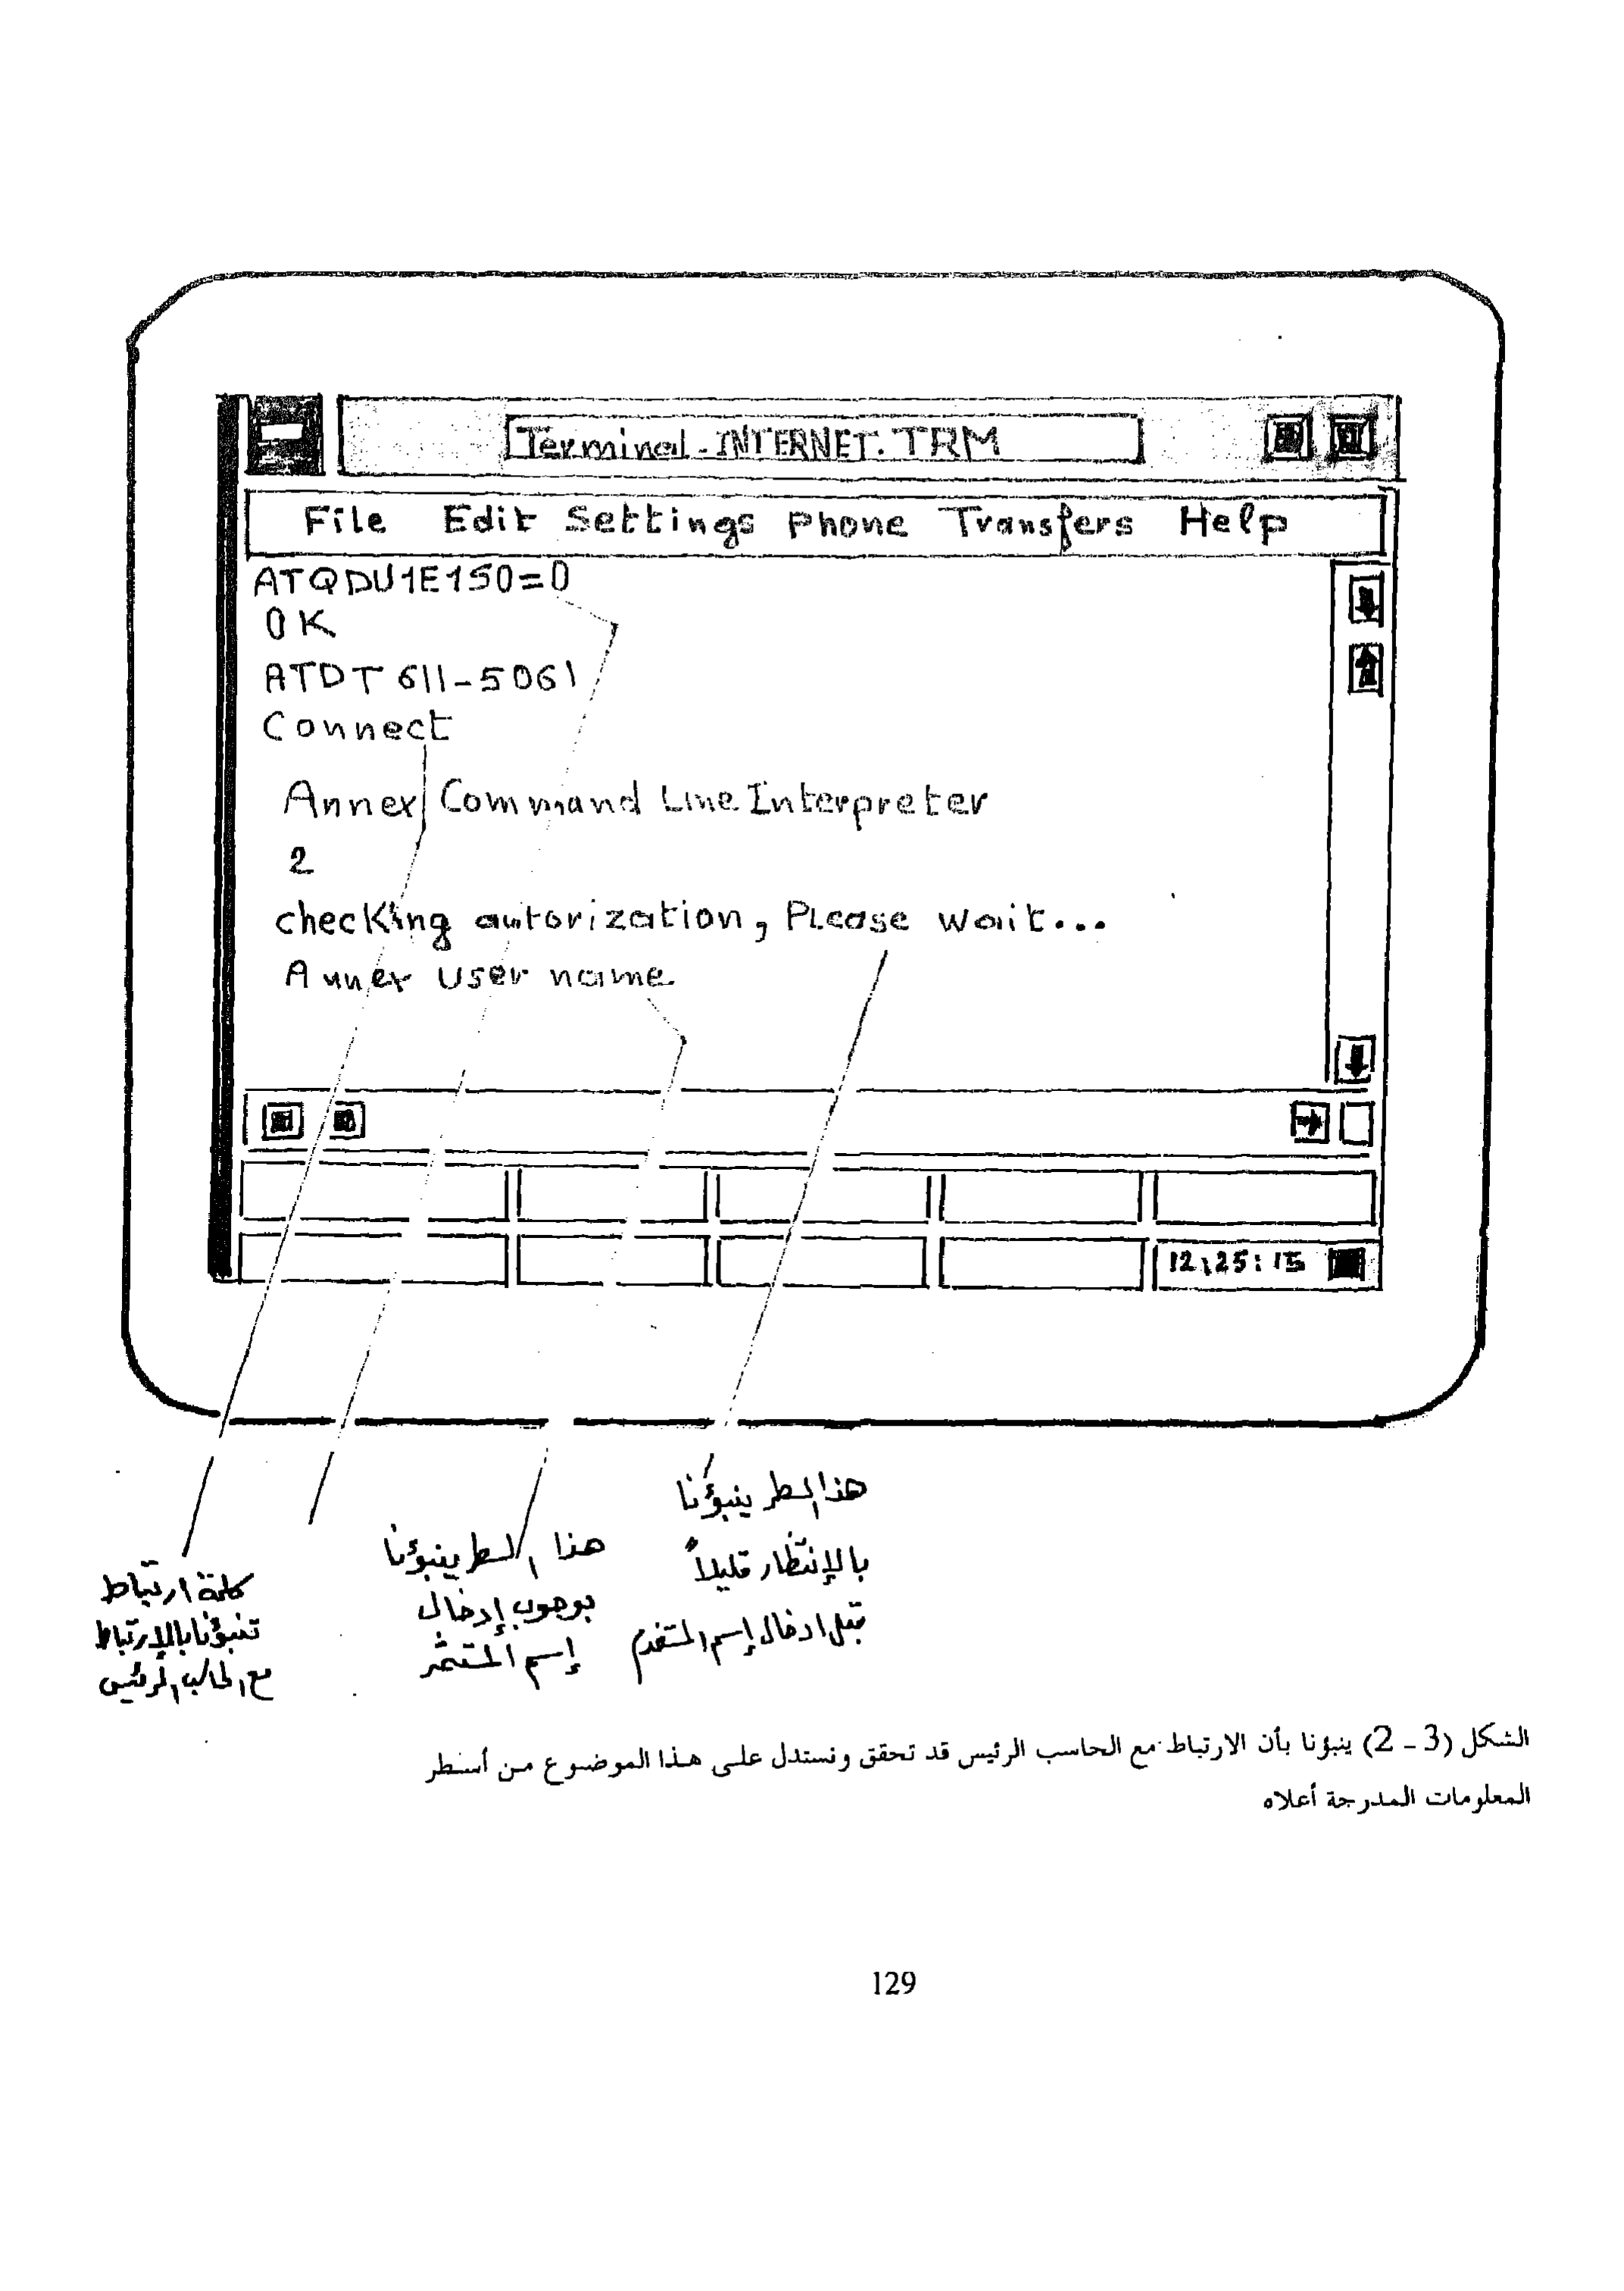 Terminal - INTERNET. TRM
File Edit Settings Phone Transfers Help
ATQDU1E150=0
OK
ATDT 611-5061
Connect
Annex Command Line Interpreter
2
checking autorization, Please wait...
Annex user name
12:25:15
هذا السطر ينبؤنا
بالإنتظار قليلاً
قبل ادخال إسم المستخدم
هذا السطر ينبؤنا
بوجوب إدخال
إسم المستثمر
كلمة ارتباط
تنبؤنا بالإرتباط
مع الحاسب الرئيس
الشكل (3 - 2) ينبؤنا بأن الارتباط مع الحاسب الرئيس قد تحقق ونستدل على هذا الموضوع من أسطر
المعلومات المدرجة أعلاه
129